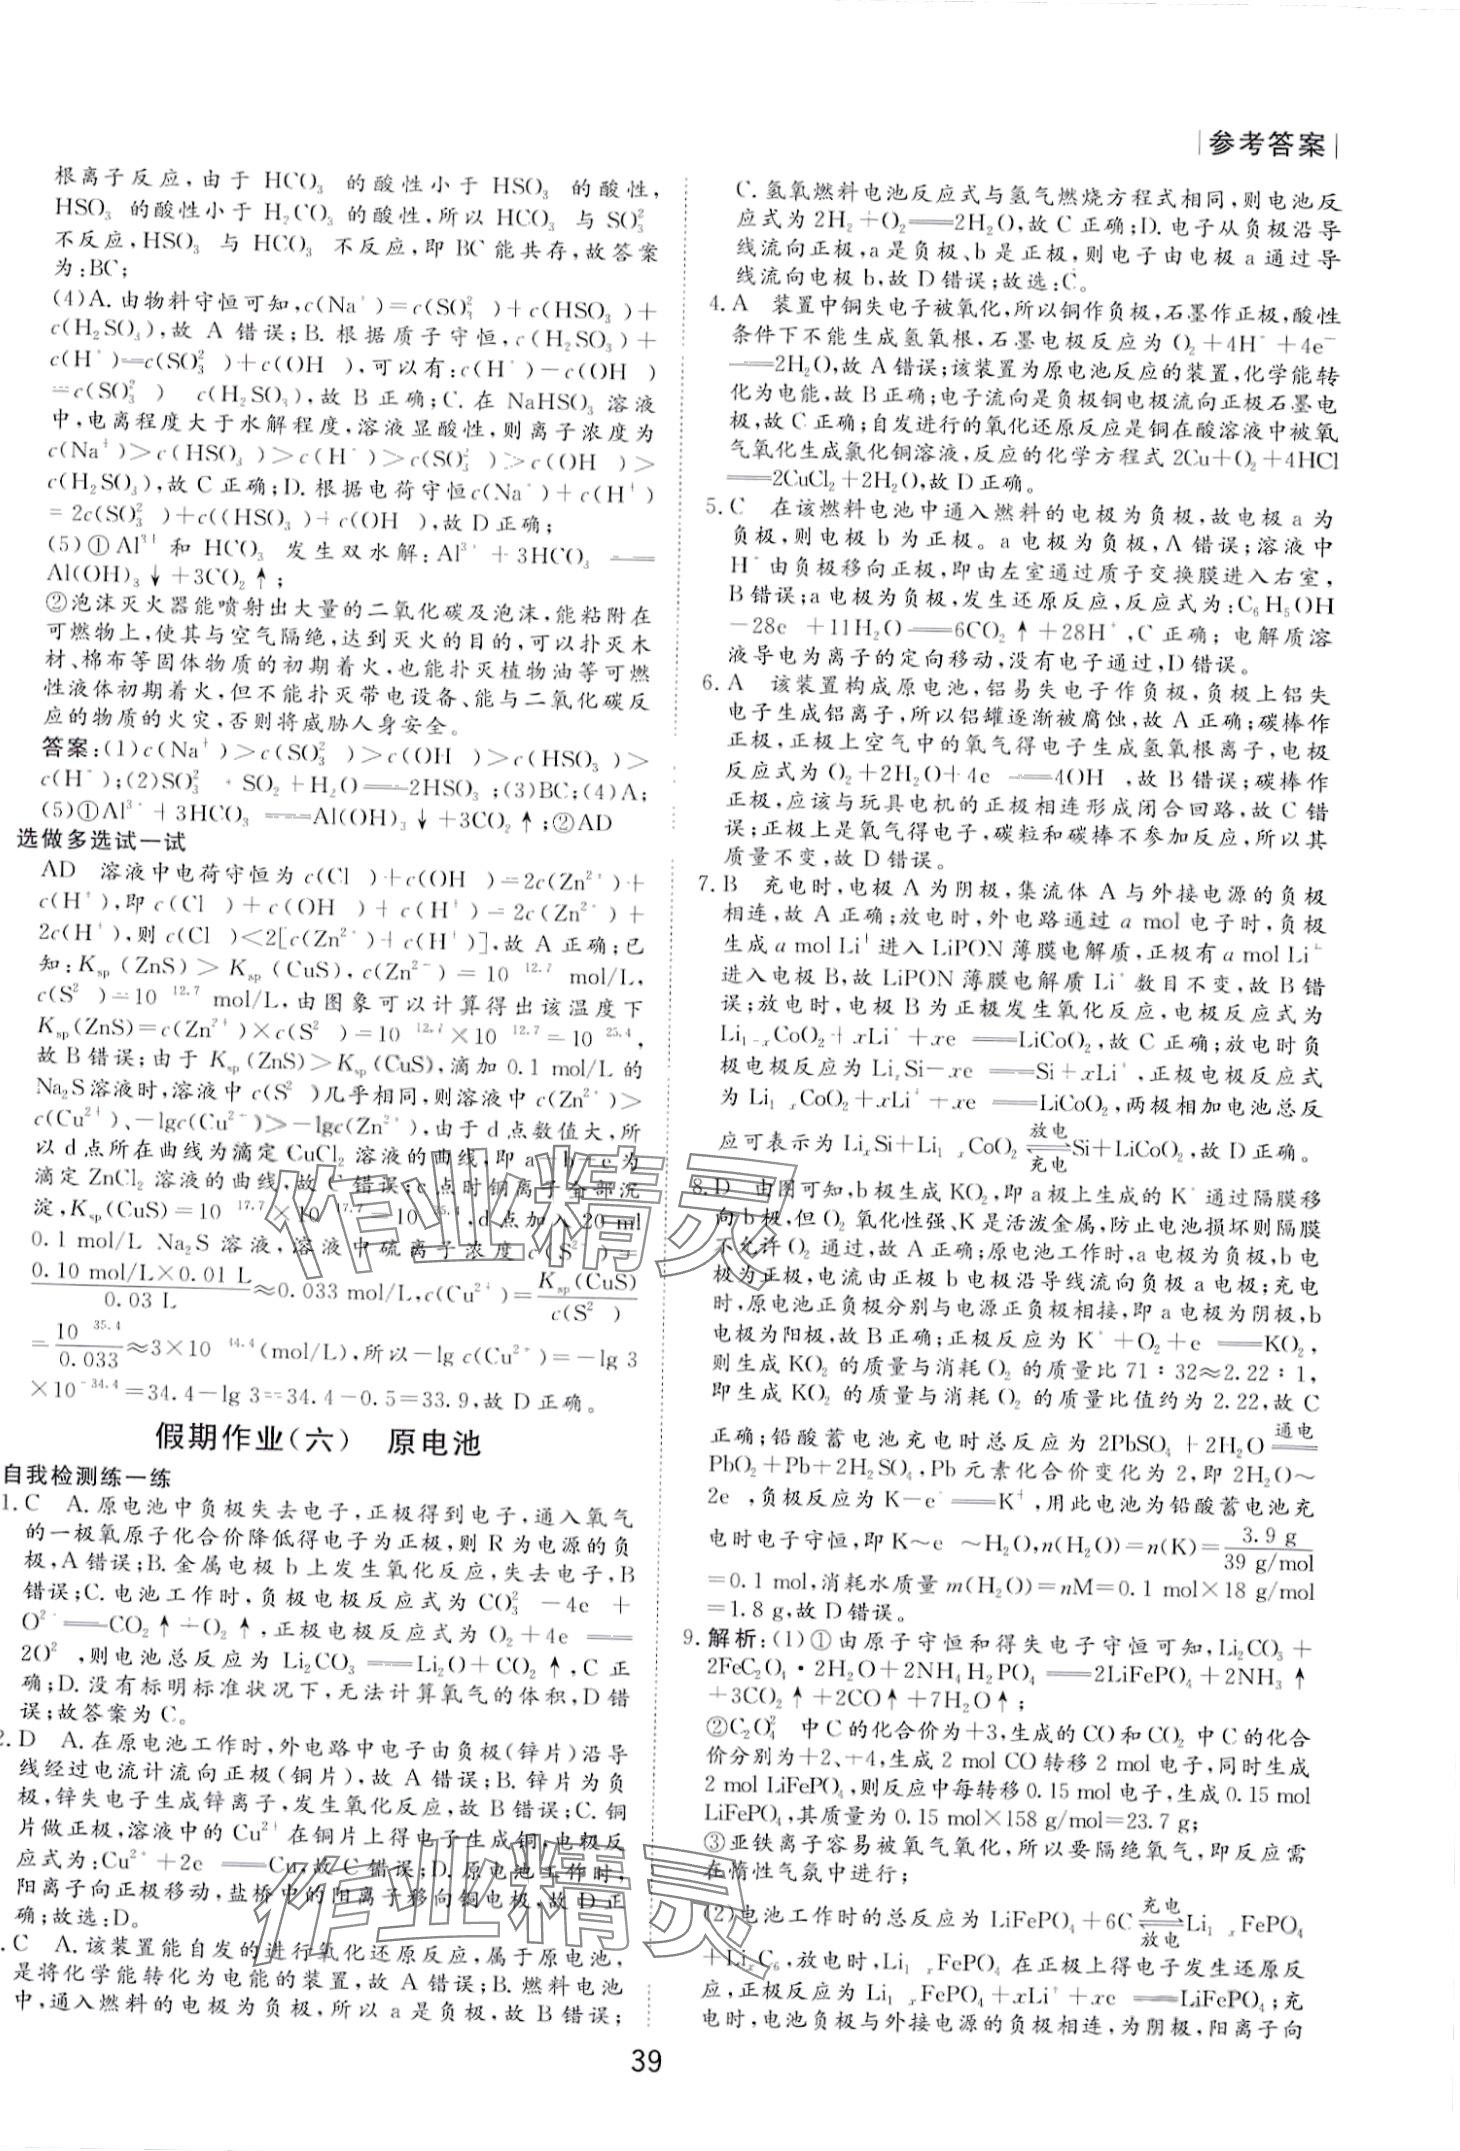 参考答案
根离子反应,由于 HCO₃ 的酸性小于 HSO₃ 的酸性,
HSO₃ 的酸性小于 H₂CO₃ 的酸性,所以 HCO₃ 与 SO₃²
不反应,HSO₃ 与 HCO₃ 不反应,即 BC 能共存,故答案
为:BC;
(4)A. 由物料守恒可知,c(Na⁺)=c(SO₃²)+c(HSO₃)+
c(H₂SO₃),故 A 错误;B. 根据质子守恒,c(H₂SO₃)+
c(H⁺)=c(SO₃²)+c(OH),可以有:c(H⁺)-c(OH)
=c(SO₃²) c(H₂SO₃),故 B 正确;C. 在 NaHSO₃ 溶液
中,电离程度大于水解程度,溶液显酸性,则离子浓度为
c(Na⁺)>c(HSO₃)>c(H⁺)>c(SO₃²)>c(OH)>
c(H₂SO₃),故 C 正确;D. 根据电荷守恒c(Na⁺)+c(H⁺)
=2c(SO₃²)+c((HSO₃)+c(OH),故 D 正确;
(5)①Al³⁺ 和 HCO₃ 发生双水解:Al³⁺+3HCO₃ ══
Al(OH)₃↓+3CO₂↑;
②泡沫灭火器能喷射出大量的二氧化碳及泡沫,能粘附在
可燃物上,使其与空气隔绝,达到灭火的目的,可以扑灭木
材、棉布等固体物质的初期着火,也能扑灭植物油等可燃
性液体初期着火,但不能扑灭带电设备、能与二氧化碳反
应的物质的火灾,否则将威胁人身安全。
答案:(1)c(Na⁺)>c(SO₃²)>c(OH)>c(HSO₃)>
c(H⁺);(2)SO₃²+SO₂+H₂O══2HSO₃;(3)BC;(4)A;
(5)①Al³⁺+3HCO₃══Al(OH)₃↓+3CO₂↑;②AD
选做多选试一试
AD 溶液中电荷守恒为 c(Cl)+c(OH)=2c(Zn²⁺)+
c(H⁺),即 c(Cl)+c(OH)+c(H⁺)=2c(Zn²⁺)+
2c(H⁺),则 c(Cl)<2[c(Zn²⁺)+c(H⁺)],故 A 正确;已
知:Ksp(ZnS)>Ksp(CuS),c(Zn²⁺)=10 ¹²·⁷ mol/L,
c(S²)=10 ¹²·⁷ mol/L,由图象可以计算得出该温度下
Ksp(ZnS)=c(Zn²⁺)×c(S²)=10 ¹²·⁷×10 ¹²·⁷=10 ²⁵·⁴,
故 B 错误;由于 Ksp(ZnS)>Ksp(CuS),滴加 0.1 mol/L 的
Na₂S溶液时,溶液中 c(S²)几乎相同,则溶液中 c(Zn²⁺)>
c(Cu²⁺)、-lgc(Cu²⁺)>-lgc(Zn²⁺),由于 d 点数值大,所
以 d 点所在曲线为滴定 CuCl₂ 溶液的曲线,即 a—b—e 为
滴定 ZnCl₂ 溶液的曲线,故 C 错误;c 点时铜离子全部沉
淀,Ksp(CuS)=10 ¹⁷·⁷×10 ¹⁷·⁷=10 ³⁵·⁴,d 点加入 20 ml
0.1 mol/L Na₂S 溶液,溶液中硫离子浓度 c(S²)=
(0.10 mol/L×0.01 L)/(0.03 L)≈0.033 mol/L,c(Cu²⁺)=Ksp(CuS)/c(S²)
=10 ³⁵·⁴/0.033≈3×10 ³⁴·⁴(mol/L),所以-lg c(Cu²⁺)=-lg 3
×10⁻³⁴·⁴=34.4-lg 3=34.4-0.5=33.9,故 D 正确。
假期作业(六) 原电池
自我检测练一练
1. C A. 原电池中负极失去电子,正极得到电子,通入氧气
的一极氧原子化合价降低得电子为正极,则 R 为电源的负
极,A 错误;B. 金属电极 b 上发生氧化反应,失去电子,B
错误;C. 电池工作时,负极电极反应式为 CO₃²-4e+
O²══CO₂↑+O₂↑,正极电极反应式为 O₂+4e══
2O²,则电池总反应为 Li₂CO₃══Li₂O+CO₂↑,C 正
确;D. 没有标明标准状况下,无法计算氧气的体积,D 错
误;故答案为 C。
2. D A. 在原电池工作时,外电路中电子由负极(锌片)沿导
线经过电流计流向正极(铜片),故 A 错误;B. 锌片为负
极,锌失电子生成锌离子,发生氧化反应,故 B 错误;C. 铜
片做正极,溶液中的 Cu²⁺ 在铜片上得电子生成铜,电极反
应式为:Cu²⁺+2e══Cu,故 C 错误;D. 原电池工作时,
阳离子向正极移动,盐桥中的阳离子移向铜电极,故 D 正
确;故选:D。
. C A. 该装置能自发的进行氧化还原反应,属于原电池,
是将化学能转化为电能的装置,故 A 错误;B. 燃料电池
中,通入燃料的电极为负极,所以 a 是负极,故 B 错误;
C. 氢氧燃料电池反应式与氢气燃烧方程式相同,则电池反
应式为 2H₂+O₂══2H₂O,故 C 正确;D. 电子从负极沿导
线流向正极,a 是负极、b 是正极,则电子由电极 a 通过导
线流向电极 b,故 D 错误;故选:C。
4. A 装置中铜失电子被氧化,所以铜作负极,石墨作正极,酸性
条件下不能生成氢氧根,石墨电极反应为 O₂+4H⁺+4e⁻
══2H₂O,故 A 错误;该装置为原电池反应的装置,化学能转
化为电能,故 B 正确;电子流向是负极铜电极流向正极石墨电
极,故 C 正确;自发进行的氧化还原反应是铜在酸溶液中被氧
气氧化生成氯化铜溶液,反应的化学方程式 2Cu+O₂+4HCl
══2CuCl₂+2H₂O,故 D 正确。
5. C 在该燃料电池中通入燃料的电极为负极,故电极 a 为
负极,则电极 b 为正极。a 电极为负极,A 错误;溶液中
H⁺ 由负极移向正极,即由左室通过质子交换膜进入右室,
B 错误;a 电极为负极,发生还原反应,反应式为:C₆H₅OH
-28e+11H₂O══6CO₂↑+28H⁺,C 正确;电解质溶
液导电为离子的定向移动,没有电子通过,D 错误。
6. A 该装置构成原电池,铝易失电子作负极,负极上铝失
电子生成铝离子,所以铝罐逐渐被腐蚀,故 A 正确;碳棒作
正极,正极上空气中的氧气得电子生成氢氧根离子,电极
反应式为 O₂+2H₂O+4e══4OH,故 B 错误;碳棒作
正极,应该与玩具电机的正极相连形成闭合回路,故 C 错
误;正极上是氧气得电子,碳粒和碳棒不参加反应,所以其
质量不变,故 D 错误。
7. B 充电时,电极 A 为阴极,集流体 A 与外接电源的负极
相连,故 A 正确;放电时,外电路通过 a mol 电子时,负极
生成 a mol Li⁺ 进入 LiPON 薄膜电解质,正极有 a mol Li⁺
进入电极 B,故 LiPON 薄膜电解质 Li⁺ 数目不变,故 B 错
误;放电时,电极 B 为正极发生氧化反应,电极反应式为
Li₁₋ₓCoO₂+xLi⁺+xe══LiCoO₂,故 C 正确;放电时负
极电极反应为 LiₓSi-xe══Si+xLi⁺,正极电极反应式
为 Li₁ ₓCoO₂+xLi⁺+xe══LiCoO₂,两极相加电池总反
应可表示为 LiₓSi+Li₁ ₓCoO₂ 放电⇌充电 Si+LiCoO₂,故 D 正确。
8. D 由图可知,b 极生成 KO₂,即 a 极上生成的 K⁺ 通过隔膜移
向 b 极,但 O₂ 氧化性强、K 是活泼金属,防止电池损坏则隔膜
不允许 O₂ 通过,故 A 正确;原电池工作时,a 电极为负极,b 电
极为正极,电流由正极 b 电极沿导线流向负极 a 电极;充电
时,原电池正负极分别与电源正负极相接,即 a 电极为阴极,b
电极为阳极,故 B 正确;正极反应为 K⁺+O₂+e══KO₂,
则生成 KO₂ 的质量与消耗 O₂ 的质量比 71∶32≈2.22∶1,
即生成 KO₂ 的质量与消耗 O₂ 的质量比值约为 2.22,故 C
正确;铅酸蓄电池充电时总反应为 2PbSO₄+2H₂O 通电══
PbO₂+Pb+2H₂SO₄,Pb 元素化合价变化为 2,即 2H₂O~
2e,负极反应为 K-e══K⁺,用此电池为铅酸蓄电池充
电时电子守恒,即 K~e~H₂O,n(H₂O)=n(K)=3.9 g/39 g/mol
=0.1 mol,消耗水质量 m(H₂O)=nM=0.1 mol×18 g/mol
=1.8 g,故 D 错误。
9. 解析:(1)①由原子守恒和得失电子守恒可知,Li₂CO₃+
2FeC₂O₄·2H₂O+2NH₄H₂PO₄══2LiFePO₄+2NH₃↑
+3CO₂↑+2CO↑+7H₂O↑;
②C₂O₄² 中 C 的化合价为+3,生成的 CO 和 CO₂ 中 C 的化合
价分别为+2、+4,生成 2 mol CO 转移 2 mol 电子,同时生成
2 mol LiFePO₄,则反应中每转移 0.15 mol 电子,生成 0.15 mol
LiFePO₄,其质量为 0.15 mol×158 g/mol=23.7 g;
③亚铁离子容易被氧气氧化,所以要隔绝氧气,即反应需
在惰性气氛中进行;
(2)电池工作时的总反应为 LiFePO₄+6C 充电⇌放电 Li₁ ₓFePO₄
+LiₓC₆,放电时,Li₁ ₓFePO₄ 在正极上得电子发生还原反
应,正极反应为 Li₁ ₓFePO₄+xLi⁺+xe══LiFePO₄;充
电时,电池负极与外接电源的负极相连,为阴极,阳离子向
39
作业精灵
作业精灵